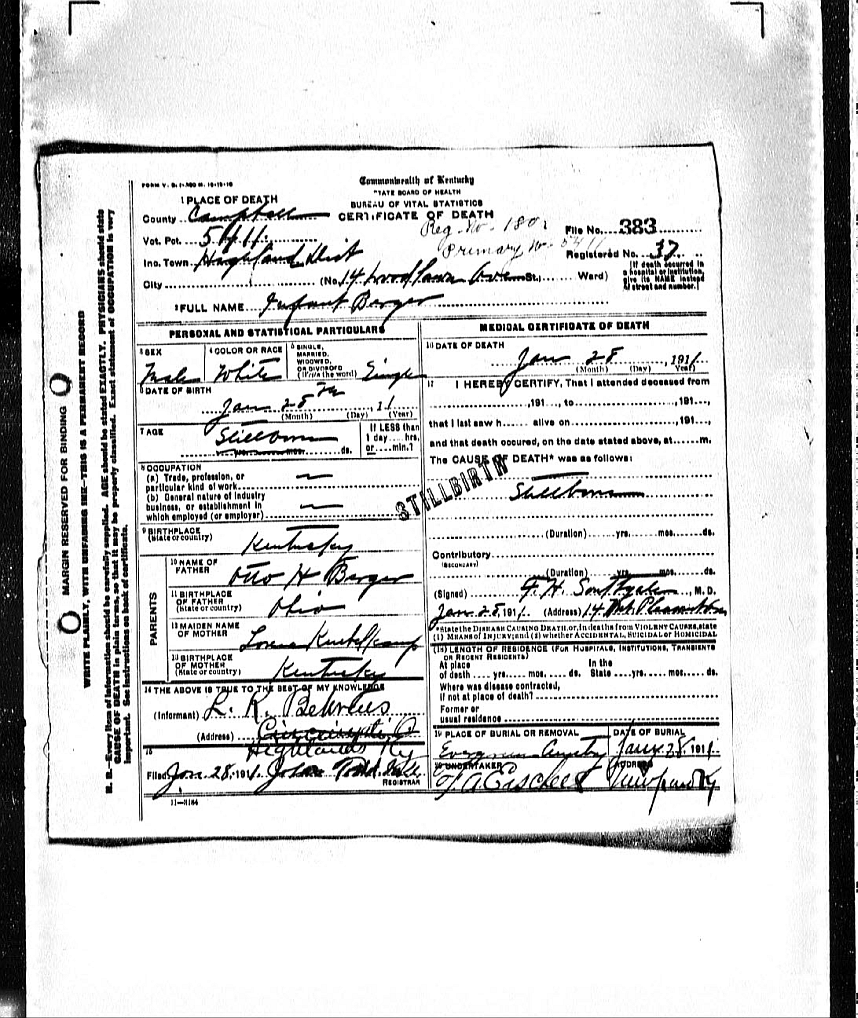 FORM V. S. 1-
Commonwealth of Kentucky
TATE BOARD OF HEALTH
BUREAU OF VITAL STATISTICS
CERTIFICATE OF DEATH
1 PLACE OF DEATH
County Campbell
Vot. Pct. 5411
Reg. No. 180
File No. 383
Primary No. 5411
Registered No. 37
Inc. Town Highland Dist
City (No. 14 Woodlawn Ave St., Ward)
[If death occurred in a hospital or institution, give its NAME instead of street and number.]
2 FULL NAME Infant Berger
PERSONAL AND STATISTICAL PARTICULARS
3 SEX Male
4 COLOR OR RACE White
5 SINGLE, MARRIED, WIDOWED, OR DIVORCED (Write the word) Single
6 DATE OF BIRTH
Jan 28 11
(Month) (Day) (Year)
7 AGE Stillborn
yrs. mos. ds.
If LESS than
1 day hrs.
or min.?
8 OCCUPATION
(a) Trade, profession, or
particular kind of work
(b) General nature of industry
business, or establishment in
which employed (or employer)
9 BIRTHPLACE
(State or country) Kentucky
PARENTS
10 NAME OF
FATHER Otto H Berger
11 BIRTHPLACE
OF FATHER
(State or country) Ohio
12 MAIDEN NAME
OF MOTHER Lorena
13 BIRTHPLACE
OF MOTHER
(State or country) Kentucky
14 THE ABOVE IS TRUE TO THE BEST OF MY KNOWLEDGE
(Informant) L. K. Behrens
(Address) Cincinnati O
Highlands Ky
15
Filed Jan. 28, 1911 John Todd
REGISTRAR
11-3184
MEDICAL CERTIFICATE OF DEATH
16 DATE OF DEATH
Jan 28, 1911
(Month) (Day) (Year)
17 I HEREBY CERTIFY, That I attended deceased from
, 191 , to , 191 ,
that I last saw h alive on , 191 ,
and that death occured, on the date stated above, at m.
The CAUSE OF DEATH* was as follows:
STILLBIRTH
Stillborn
(Duration) yrs. mos. ds.
Contributory
(SECONDARY)
(Duration) yrs. mos. ds.
(Signed) F. H. Southgate, M. D.
Jan 28, 1911 (Address) 14
*State the DISEASE CAUSING DEATH, or, in deaths from VIOLENT CAUSES, state
(1) MEANS OF INJURY; and (2) whether ACCIDENTAL, SUICIDAL or HOMICIDAL
(18) LENGTH OF RESIDENCE (FOR HOSPITALS, INSTITUTIONS, TRANSIENTS
OR RECENT RESIDENTS)
At place In the
of death yrs. mos. ds. State yrs. mos. ds.
Where was disease contracted,
if not at place of death?
Former or
usual residence
19 PLACE OF BURIAL OR REMOVAL
DATE OF BURIAL
Evergreen
Jan 28, 1911
20 UNDERTAKER
ADDRESS
Newport Ky
MARGIN RESERVED FOR BINDING
WRITE PLAINLY, WITH UNFADING INK—THIS IS A PERMANENT RECORD
N. B.—Every item of information should be carefully supplied. AGE should be stated EXACTLY. PHYSICIANS should state
CAUSE OF DEATH in plain terms, so that it may be properly classified. Exact statement of OCCUPATION is very
important. See instructions on back of certificate.